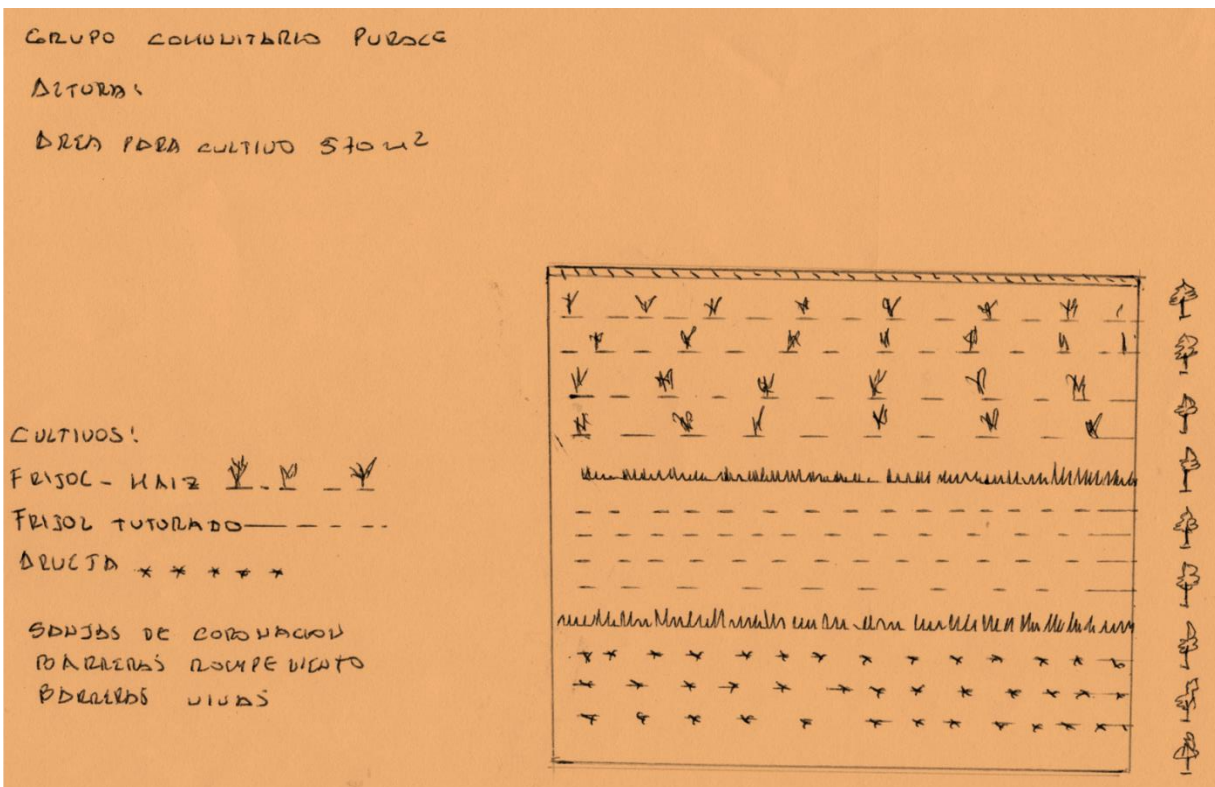 GRUPO COMUNITARIO PURACE
ALTURA:
AREA PARA CULTIVO 570 m2
CULTIVOS:
FRIJOL - MAIZ
FRIJOL TUTORADO
ARVEJA
SANJAS DE CORONACION
BARRERAS ROMPE VIENTO
BARRERAS VIVAS